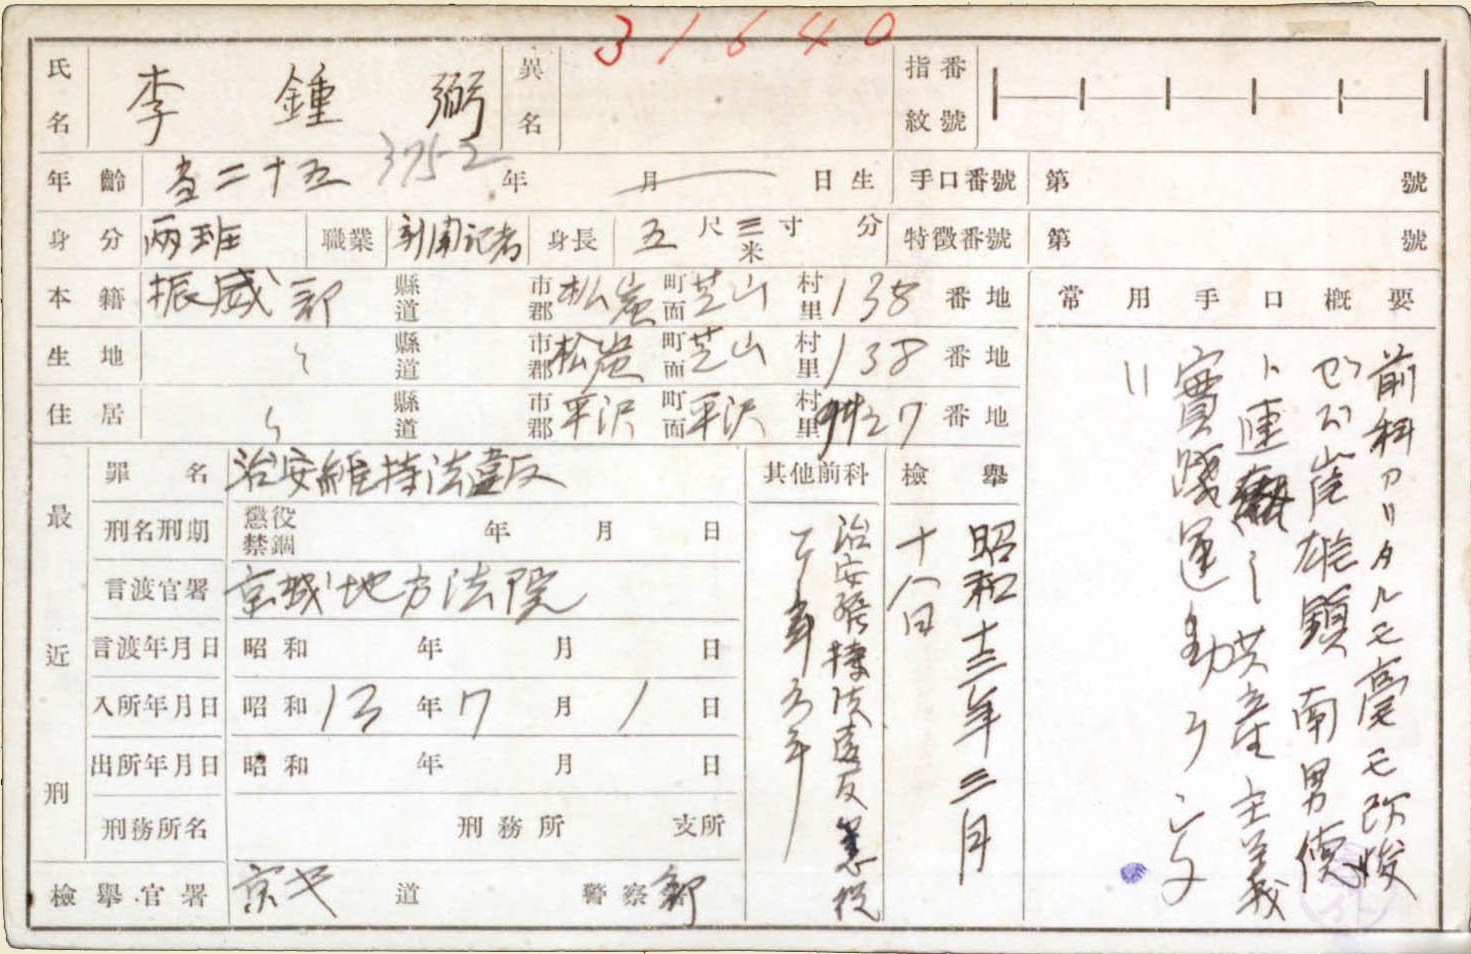 31640
氏名 李鍾弼 異名 指紋番號
年齡 當二十五 375-2 年 月 日生 手口番號 第 號
身分 兩班 職業 新聞記者 身長 五尺三寸 分 米 特徵番號 第 號
本籍 振威郡 縣道 市郡 松炭 町面 芝山 村里 138 番地 常用手口概要
生地 〃 縣道 市郡 松炭 町面 芝山 村里 138 番地
住居 〃 縣道 市郡 平沢 町面 平沢 村里 27 番地
最近刑
罪名 治安維持法違反 其他前科 檢擧
刑名刑期 懲役 禁錮 年 月 日
言渡官署 京城地方法院
言渡年月日 昭和 年 月 日
入所年月日 昭和 13 年 7 月 1 日
出所年月日 昭和 年 月 日
刑務所名 刑務所 支所
檢擧官署 京キ 道 警察部
治安維持法違反 懲役
昭和十三年三月
十八日
前科アリタルモ毫モ改悛
セズ 雄 南男
ト連 シ共産主義
實踐運動